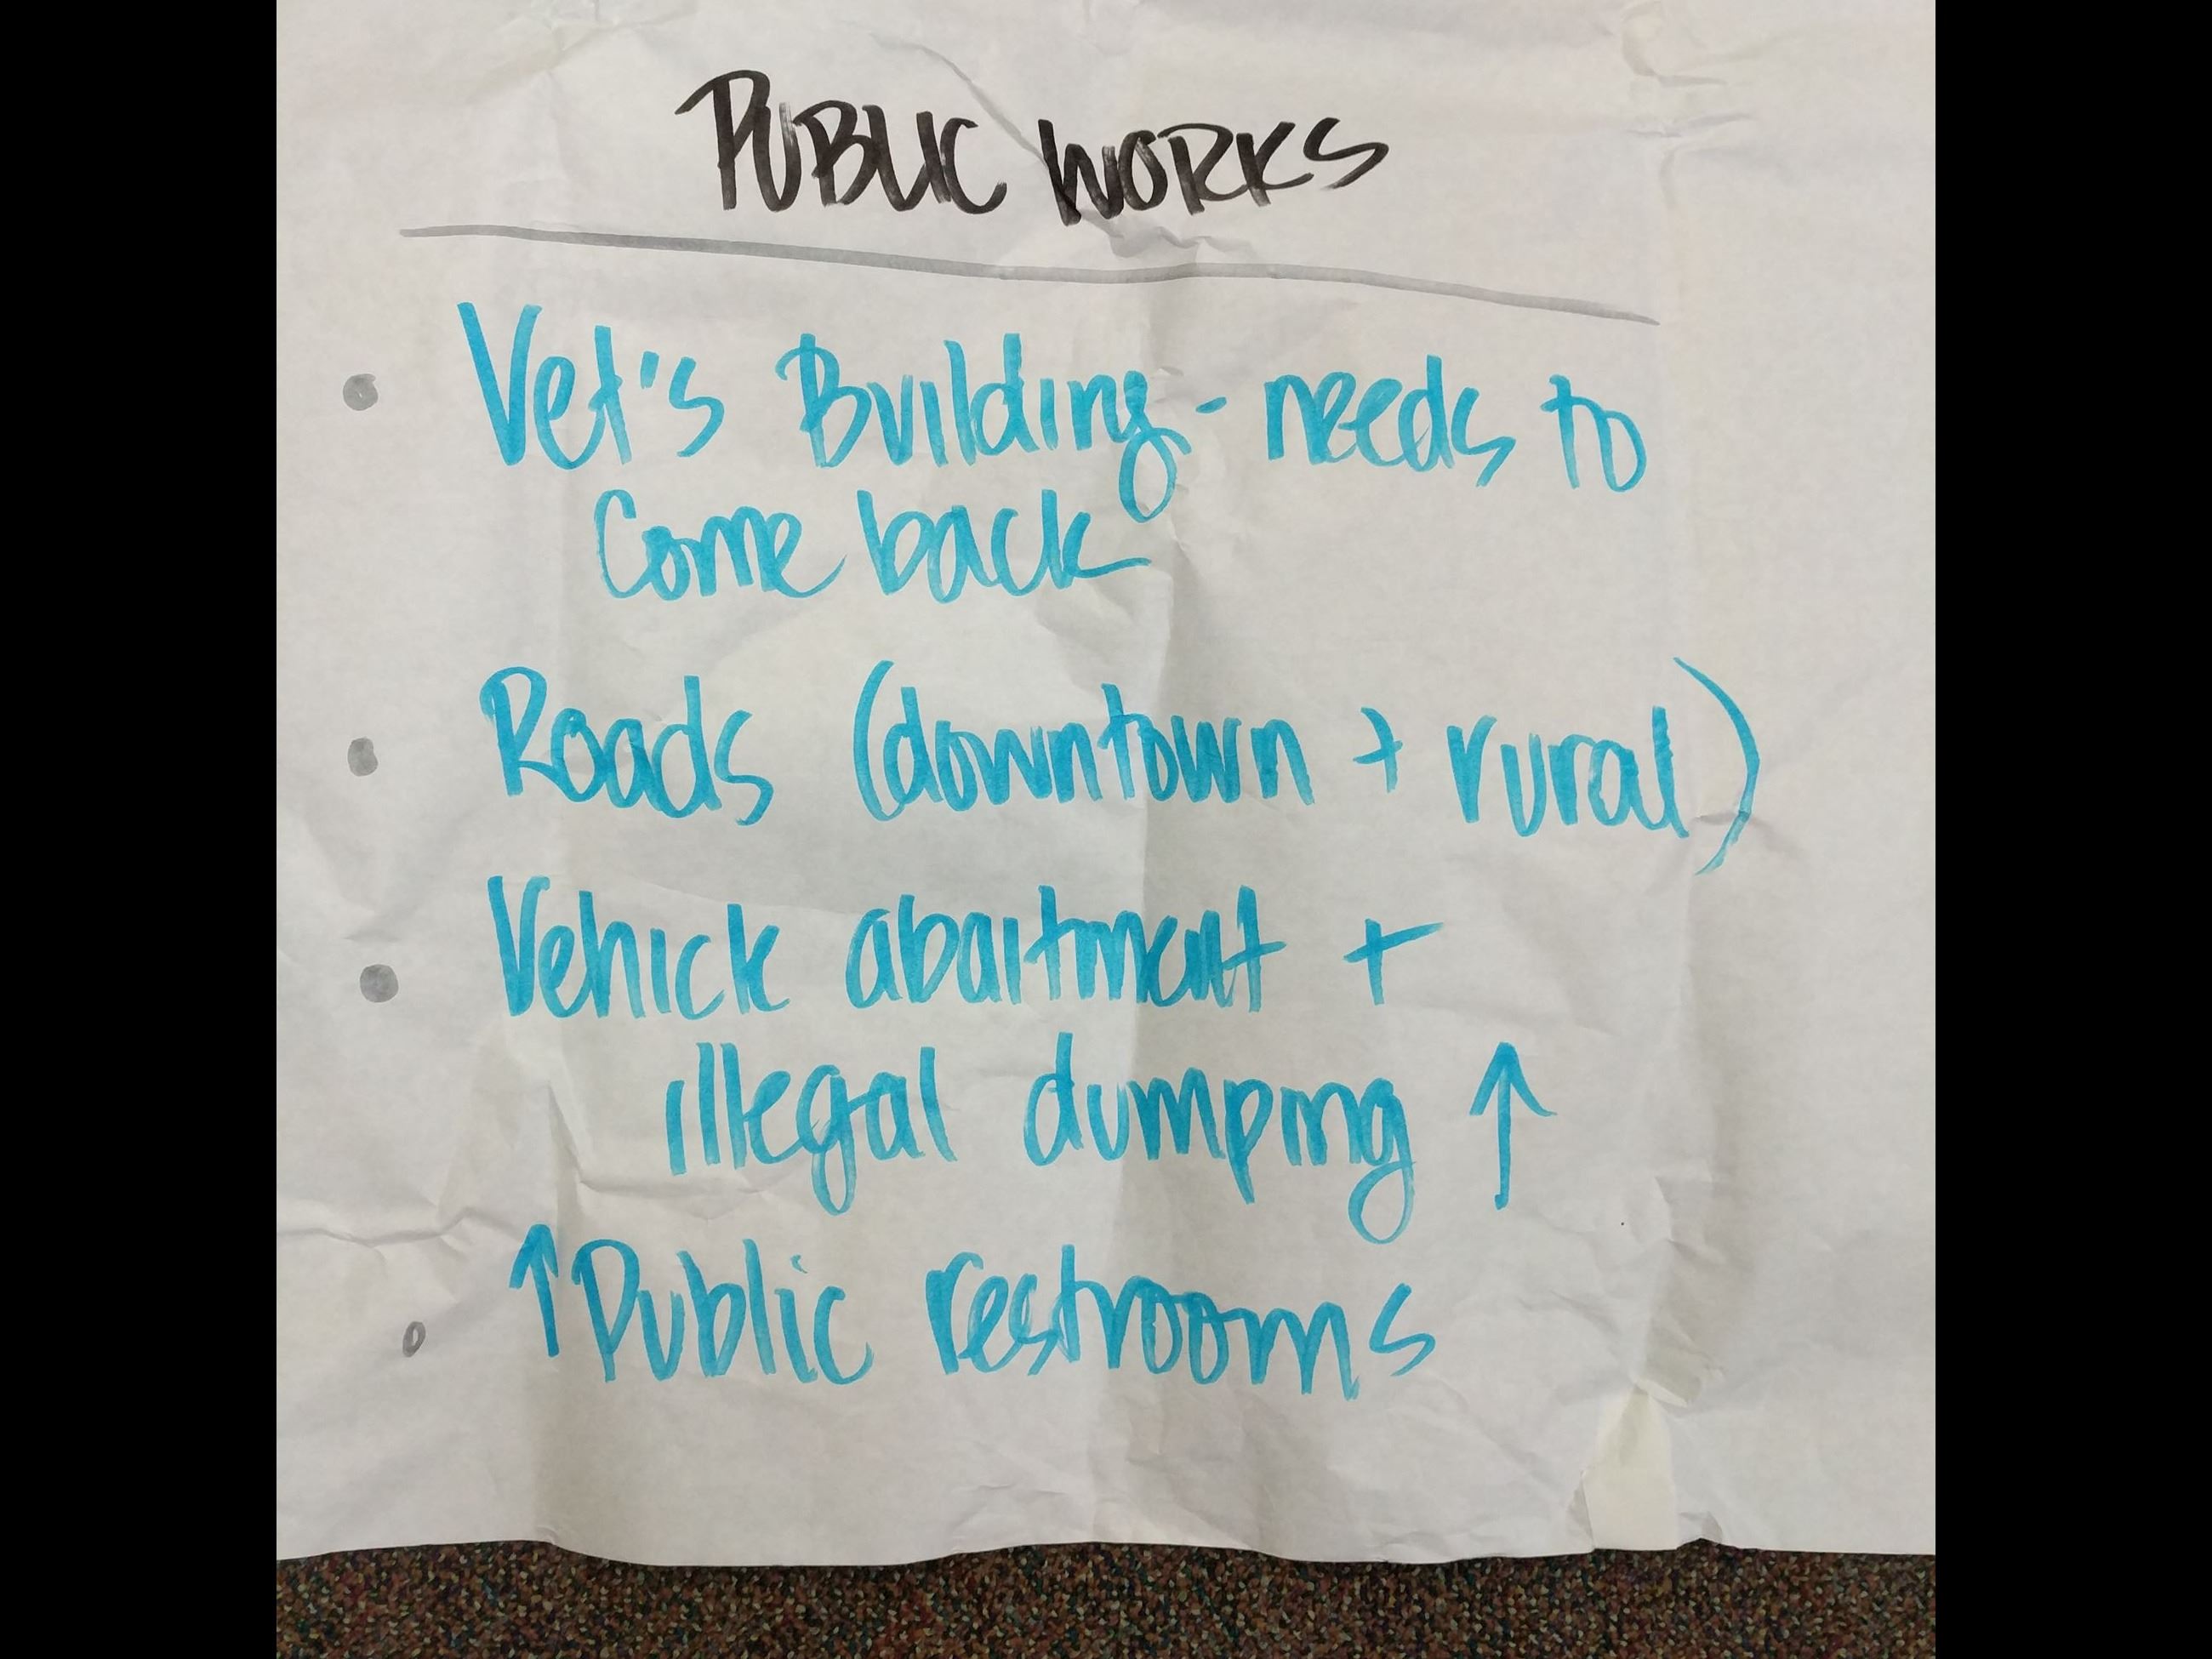 PUBLIC WORKS
• Vet's Building - needs to
come back
• Roads (downtown + rural)
• Vehicle abaitment +
illegal dumping ↑
• ↑ Public restrooms